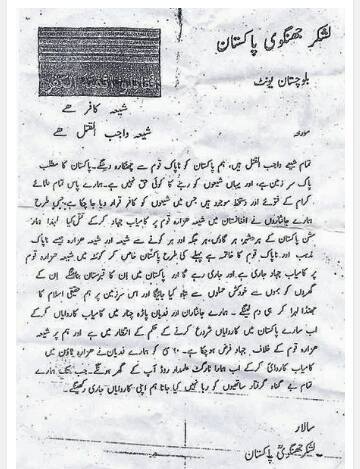 لشکر جھنگوی پاکستان
بلوچستان یونٹ
شیعہ کافر ھے
شیعہ واجب القتل ھے
مورخہ
تمام شیعے واجب القتل ہیں، ہم پاکستان کو ناپاک قوم سے چھٹکارہ دینگے۔ پاکستان کا مطلب
پاک سرزمین ہے، اور یہاں شیعوں کو رہنے کا کوئی حق نہیں ہے۔ ہمارے پاس تمام علمائے
کرام کے فتوے اور دستخط موجود ہیں جس میں شیعوں کو کافر قرار دیا جا چکا ہے۔ جس طرح
ہمارے جانثاروں نے افغانستان میں شیعہ ہزارہ قوم پر کامیاب جہاد کرکے لہذا ہمارا
مشن پاکستان کے ہر شہر، ہر گاوں، ہر جگہ اور ہر کونے سے شیعہ اور شیعہ ہزارہ جیسے ناپاک
مذہب اور ناپاک قوم کا خاتمہ ہے پہلے کی طرح پاکستان خاص کر کوئٹہ میں شیعہ ہزارہ قوم
پر کامیاب جہاد جاری ہے اور جاری رہے گا اور پاکستان میں ان کا قبرستان بنائینگے ان کے
گھروں کو بموں سے خودکش حملوں سے تباہ کیا جائیگا اور اس سرزمین پر ہم حقیقی اسلام کا
جھنڈا لہرا کر ہی دم لینگے ۔ ہمارے جانثاران اور فدیان پاڑہ چنار میں کامیاب کاروائیاں کرکے
اب سارے پاکستان میں کاروائیاں شروع کرنے کے حکم کے انتظار میں ہے اور ہم پر شیعہ
ہزارہ قوم کے خلاف جہاد فرض ہوچکا ہے۔ کو ہمارے فدیان نے ہزارہ ٹاؤن میں
کامیاب کاروائی کرکے اب ہمارا ٹارگٹ علمدار روڈ آپ کے گھر ہونگے۔ جب تک ہمارے
تمام بے گناہ گرفتار ساتھیوں کو رہا نہیں کیا جاتا ہم اپنی کاروائیاں جاری رکھینگے۔
سالار
لشکر جھنگوی پاکستان